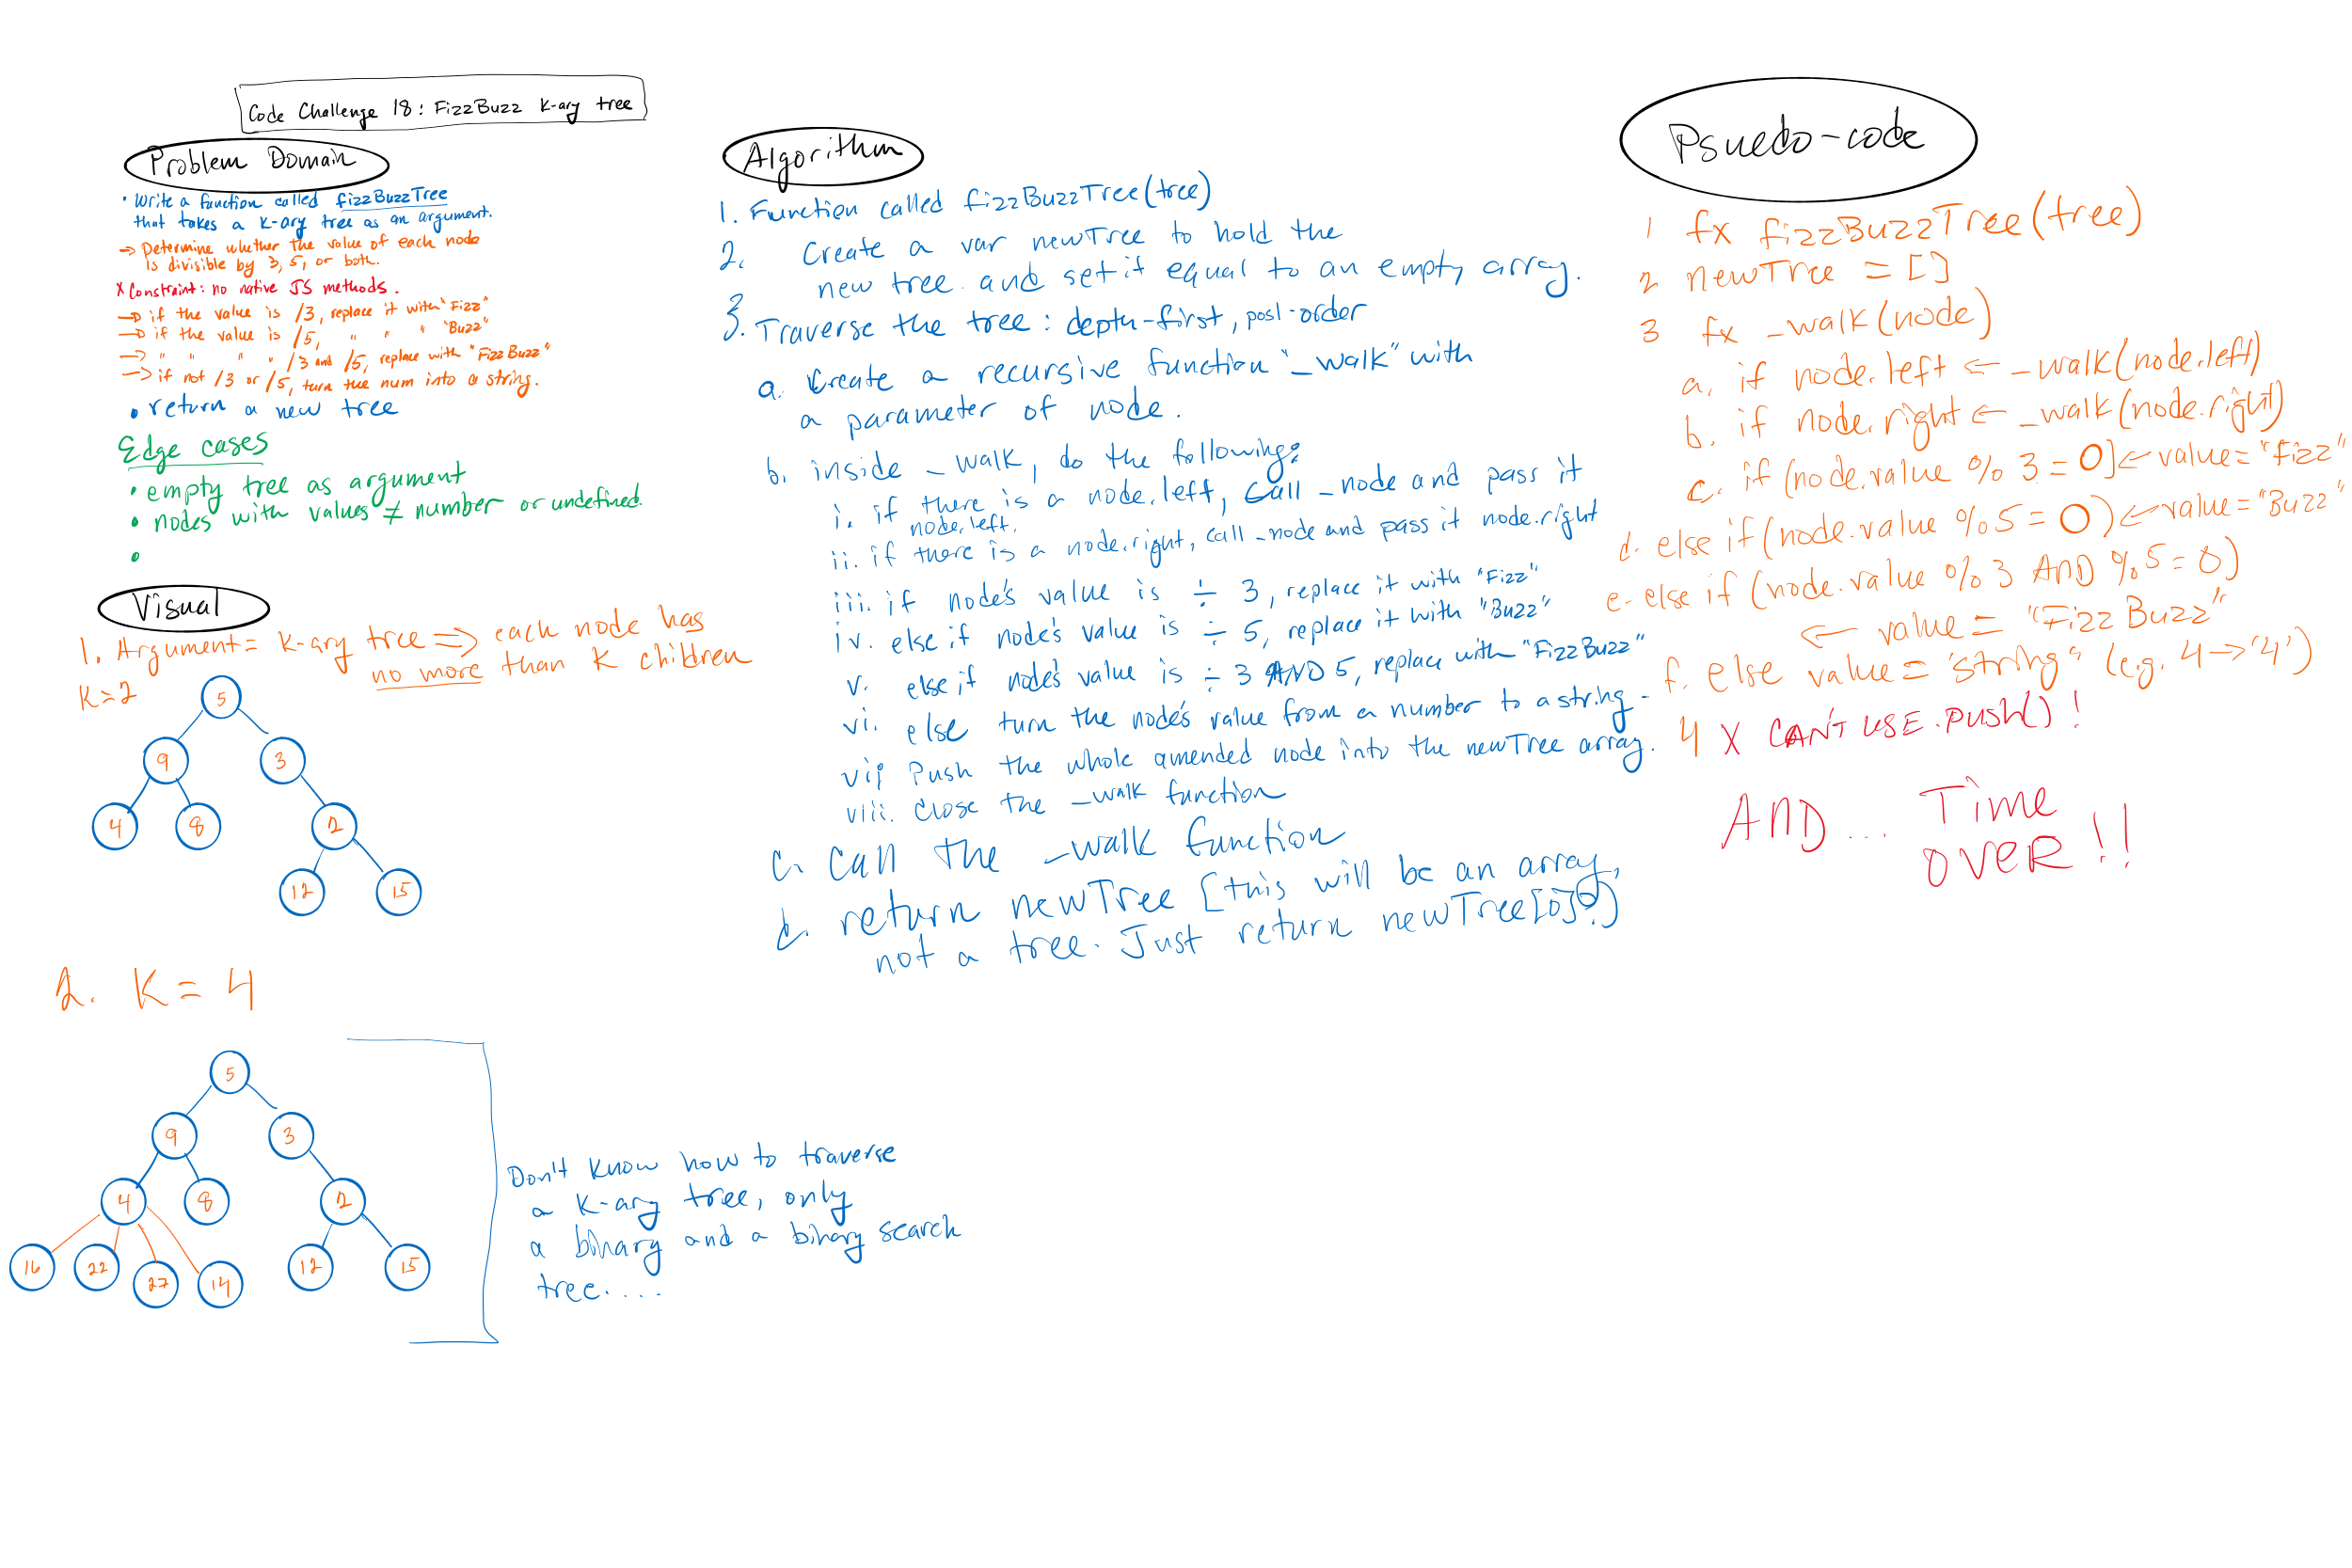 Code Challenge 18: FizzBuzz K-ary tree
Problem Domain
• Write a function called fizzBuzzTree
that takes a K-ary tree as an argument.
→ Determine whether the value of each node
is divisible by 3, 5, or both.
X Constraint: no native JS methods.
→ if the value is /3, replace it with "Fizz"
→ if the value is /5, " " " "Buzz"
→ " " " " /3 and /5, replace with "FizzBuzz"
→ if not /3 or /5, turn the num into a string.
• return a new tree
Edge cases
• empty tree as argument
• nodes with values ≠ number or undefined.
•
Visual
1. Argument = K-ary tree ⇒ each node has
no more than K children
K=2
5
9 3
4 8 2
12 15
2. K = 4
5
9 3
4 8 2
16 22 27 14 12 15
Don't know how to traverse
a K-ary tree, only
a binary and a binary search
tree....
Algorithm
1. Function called fizzBuzzTree(tree)
2. Create a var newTree to hold the
new tree and set it equal to an empty array.
3. Traverse the tree: depth-first, post-order
a. Create a recursive function "_walk" with
a parameter of node.
b. inside _walk, do the following:
i. if there is a node.left, call _node and pass it
node.left.
ii. if there is a node.right, call _node and pass it node.right
iii. if node's value is ÷ 3, replace it with "Fizz"
iv. else if node's value is ÷ 5, replace it with "Buzz"
v. else if node's value is ÷ 3 AND 5, replace with "FizzBuzz"
vi. else turn the node's value from a number to a string.
vii Push the whole amended node into the newTree array.
viii. Close the _walk function
c. call the _walk function
d. return newTree [this will be an array,
not a tree. Just return newTree[0]?)
Psuedo-code
1 fx fizzBuzzTree(tree)
2 newTree = []
3 fx _walk(node)
a. if node.left ← _walk(node.left)
b. if node.right ← _walk(node.right)
c. if (node.value % 3 = 0) ← value = "Fizz"
d. else if (node.value % 5 = 0) ← value = "Buzz"
e. else if (node.value % 3 AND % 5 = 0)
← value = "Fizz Buzz"
f. else value = "string" (e.g. 4 → '4')
4 X CAN'T USE .push()!
AND... Time
OVER!!